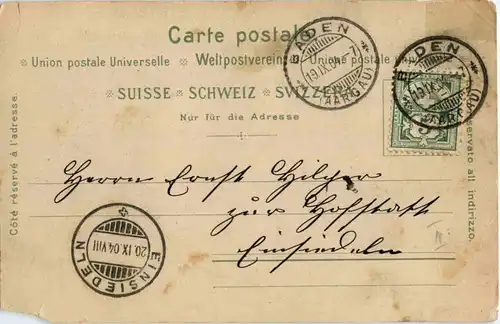 Carte postale
Union postale Universelle Weltpostverein Unione postale
SUISSE SCHWEIZ SVIZZERA
Nur für die Adresse
Côté réservé à l'adresse.
BADEN
19.IX.04
(AARGAU)
BADEN
19.IX.
Herrn Ernst Hilger
zur Hofstatt
Einsiedeln
II.
EINSIEDELN
20.IX.04.VIII
servato all indirizzo.